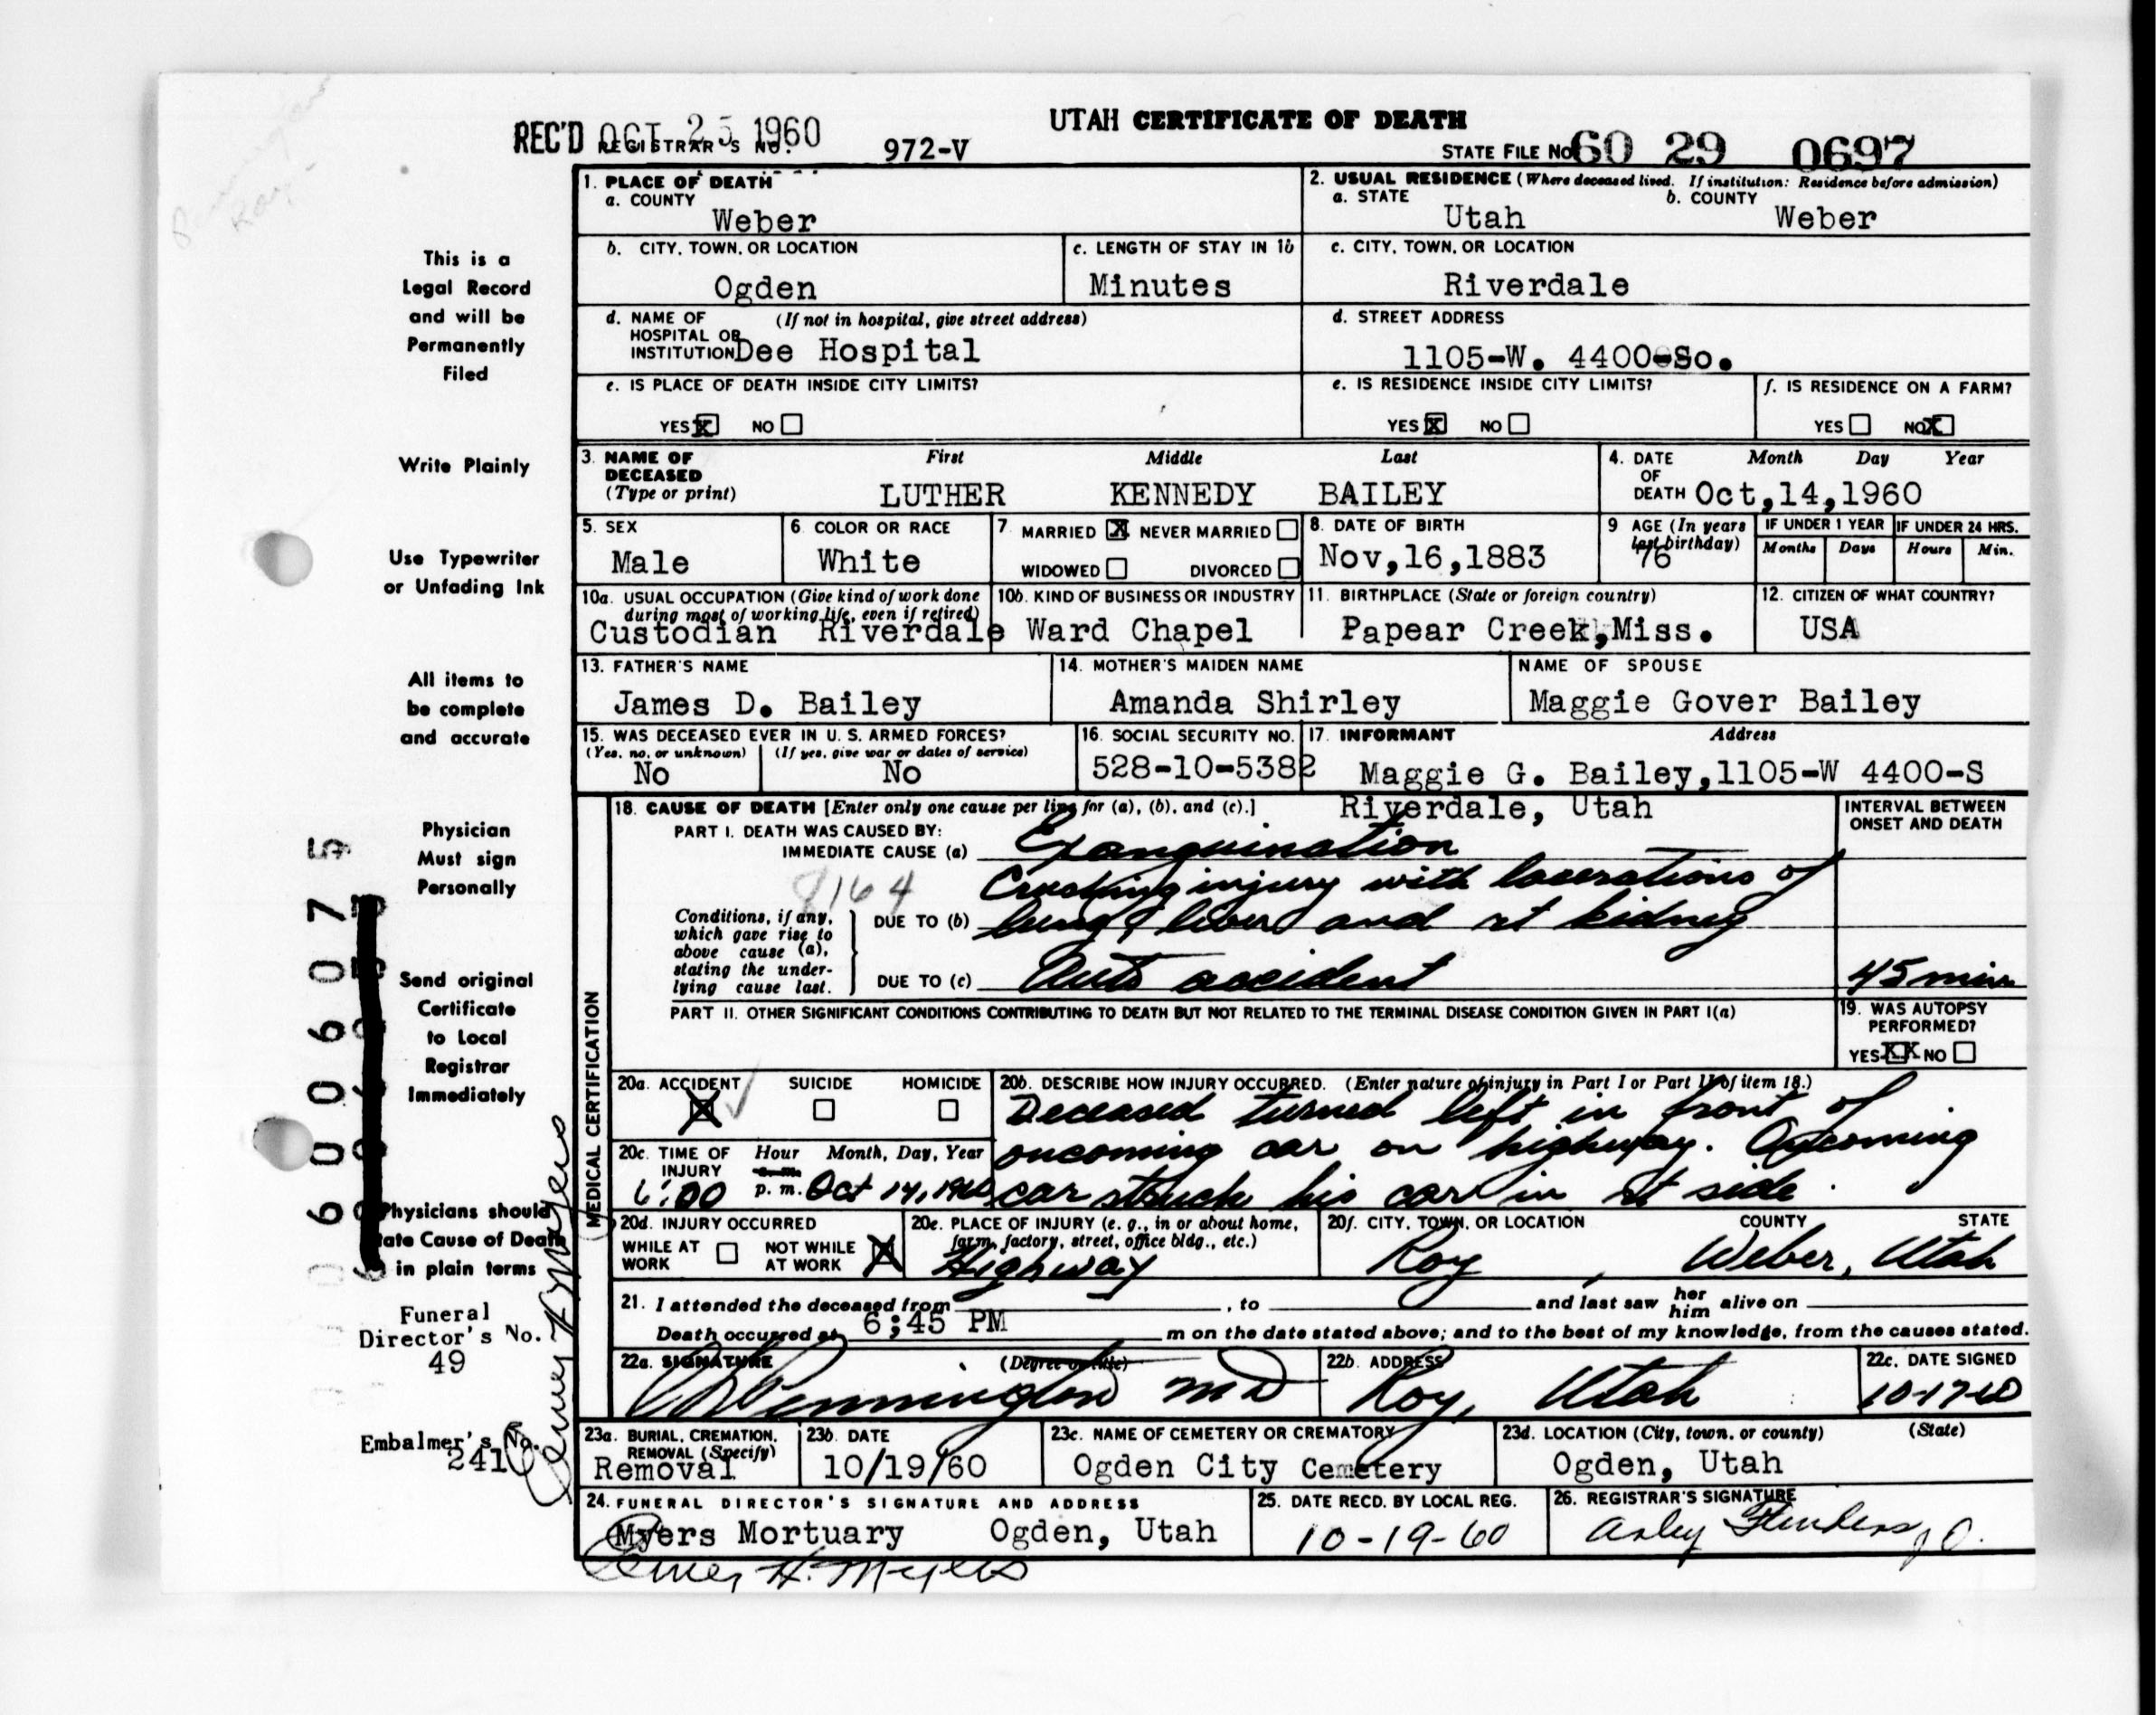 UTAH CERTIFICATE OF DEATH
REC'D OCT 25 1960
REGISTRAR'S NO. 972-V
STATE FILE No 60 29 0697
1. PLACE OF DEATH
a. COUNTY
Weber
2. USUAL RESIDENCE (Where deceased lived. If institution: Residence before admission)
a. STATE b. COUNTY
Utah Weber
b. CITY, TOWN, OR LOCATION
Ogden
c. LENGTH OF STAY IN 1b
Minutes
c. CITY, TOWN, OR LOCATION
Riverdale
d. NAME OF (If not in hospital, give street address)
HOSPITAL OR
INSTITUTION Dee Hospital
d. STREET ADDRESS
1105-W. 4400-So.
e. IS PLACE OF DEATH INSIDE CITY LIMITS?
YES X NO
e. IS RESIDENCE INSIDE CITY LIMITS?
YES X NO
f. IS RESIDENCE ON A FARM?
YES NO X
3. NAME OF DECEASED (Type or print)
First Middle Last
LUTHER KENNEDY BAILEY
4. DATE OF DEATH Month Day Year
Oct,14,1960
5. SEX
Male
6. COLOR OR RACE
White
7. MARRIED X NEVER MARRIED
WIDOWED DIVORCED
8. DATE OF BIRTH
Nov,16,1883
9 AGE (In years last birthday)
76
IF UNDER 1 YEAR IF UNDER 24 HRS.
Months Days Hours Min.
10a. USUAL OCCUPATION (Give kind of work done during most of working life, even if retired)
10b. KIND OF BUSINESS OR INDUSTRY
Custodian Riverdale Ward Chapel
11. BIRTHPLACE (State or foreign country)
Papear Creek,Miss.
12. CITIZEN OF WHAT COUNTRY?
USA
13. FATHER'S NAME
James D. Bailey
14. MOTHER'S MAIDEN NAME
Amanda Shirley
NAME OF SPOUSE
Maggie Gover Bailey
15. WAS DECEASED EVER IN U. S. ARMED FORCES?
(Yes, no, or unknown) (If yes, give war or dates of service)
No No
16. SOCIAL SECURITY NO.
528-10-5382
17. INFORMANT Address
Maggie G. Bailey,1105-W 4400-S
Riverdale, Utah
MEDICAL CERTIFICATION
18. CAUSE OF DEATH [Enter only one cause per line for (a), (b), and (c).]
INTERVAL BETWEEN ONSET AND DEATH
PART I. DEATH WAS CAUSED BY:
IMMEDIATE CAUSE (a) Exanguination
8164
Crushing injury with lacerations of
Conditions, if any, which gave rise to above cause (a), stating the underlying cause last.
DUE TO (b) lung, liver and rt kidney
DUE TO (c) Auto accident
45 min
PART II. OTHER SIGNIFICANT CONDITIONS CONTRIBUTING TO DEATH BUT NOT RELATED TO THE TERMINAL DISEASE CONDITION GIVEN IN PART I(a)
19. WAS AUTOPSY PERFORMED?
YES XX NO
20a. ACCIDENT SUICIDE HOMICIDE
20b. DESCRIBE HOW INJURY OCCURRED. (Enter nature of injury in Part I or Part II of item 18.)
Deceased turned left in front of
oncoming car on highway. Oncoming
car struck his car in rt side.
20c. TIME OF INJURY Hour Month, Day, Year
6:00 a. m. p. m. Oct 14, 1960
20d. INJURY OCCURRED
WHILE AT WORK NOT WHILE AT WORK X
20e. PLACE OF INJURY (e. g., in or about home, farm, factory, street, office bldg., etc.)
Highway
20f. CITY, TOWN, OR LOCATION COUNTY STATE
Roy, Weber, Utah
21. I attended the deceased from , to and last saw her him alive on
Death occurred at 6;45 PM m on the date stated above; and to the best of my knowledge, from the causes stated.
22a. SIGNATURE (Degree or title)
Pennington MD
22b. ADDRESS
Roy, Utah
22c. DATE SIGNED
10-17-60
23a. BURIAL, CREMATION, REMOVAL (Specify)
Removal
23b. DATE
10/19/60
23c. NAME OF CEMETERY OR CREMATORY
Ogden City Cemetery
23d. LOCATION (City, town, or county) (State)
Ogden, Utah
24. FUNERAL DIRECTOR'S SIGNATURE AND ADDRESS
Myers Mortuary Ogden, Utah
H. Myers
25. DATE RECD. BY LOCAL REG.
10-19-60
26. REGISTRAR'S SIGNATURE
This is a
Legal Record
and will be
Permanently
Filed
Write Plainly
Use Typewriter
or Unfading Ink
All items to
be complete
and accurate
Physician
Must sign
Personally
Send original
Certificate
to Local
Registrar
Immediately
Physicians should
state Cause of Death
in plain terms
Funeral
Director's No.
49
Embalmer's No.
241
6006075